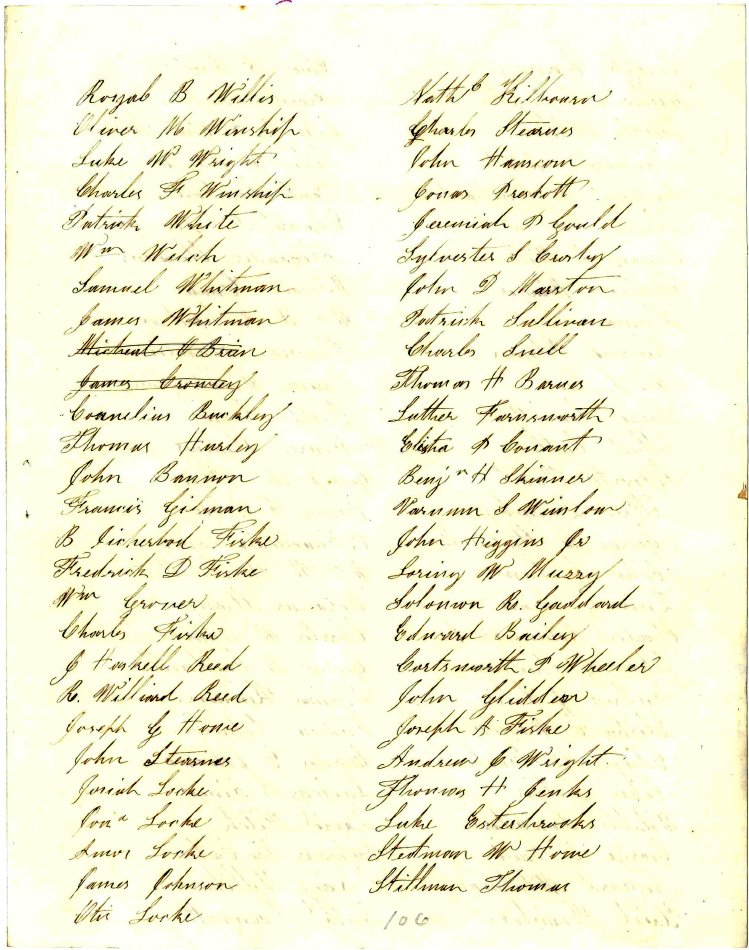 Royal B Willis
Oliver M Winship
Luke W. Wright
Charles F Winship
Patrick White
Wm Welch
Samuel Whitman
James Whitman
Micheal O Brian
James Crowley
Cornelius Buckley
Thomas Hurley
John Bannon
Francis Gilman
B Fiske
Fredrick D Fiske
Wm Grover
Charles Fiske
J Haskell Reed
R. Williard Reed
Joseph G Howe
John Stearnes
Josiah Locke
Jona Locke
Locke
James Johnson
Otis Locke
Nathl Kilbourn
Charles Stearnes
John Hanscom
Jonas Preskott
Jeremiah P Gould
Sylvester S Crosby
John D Marston
Patrick Sullivan
Charles Snell
Thomas H Barnes
Luther Farnsworth
Elisha P Conant
Benjn H Skinner
Varnum S Winslow
John Higgins Jr
Loring W Muzzy
Solomon R. Goddard
Edward Bailey
P Wheeler
John Glidden
Joseph A Fiske
Andrew J Wright
Thomas H Jenks
Luke Esterbrooks
Stedman W Howe
Stillman Thomas
106